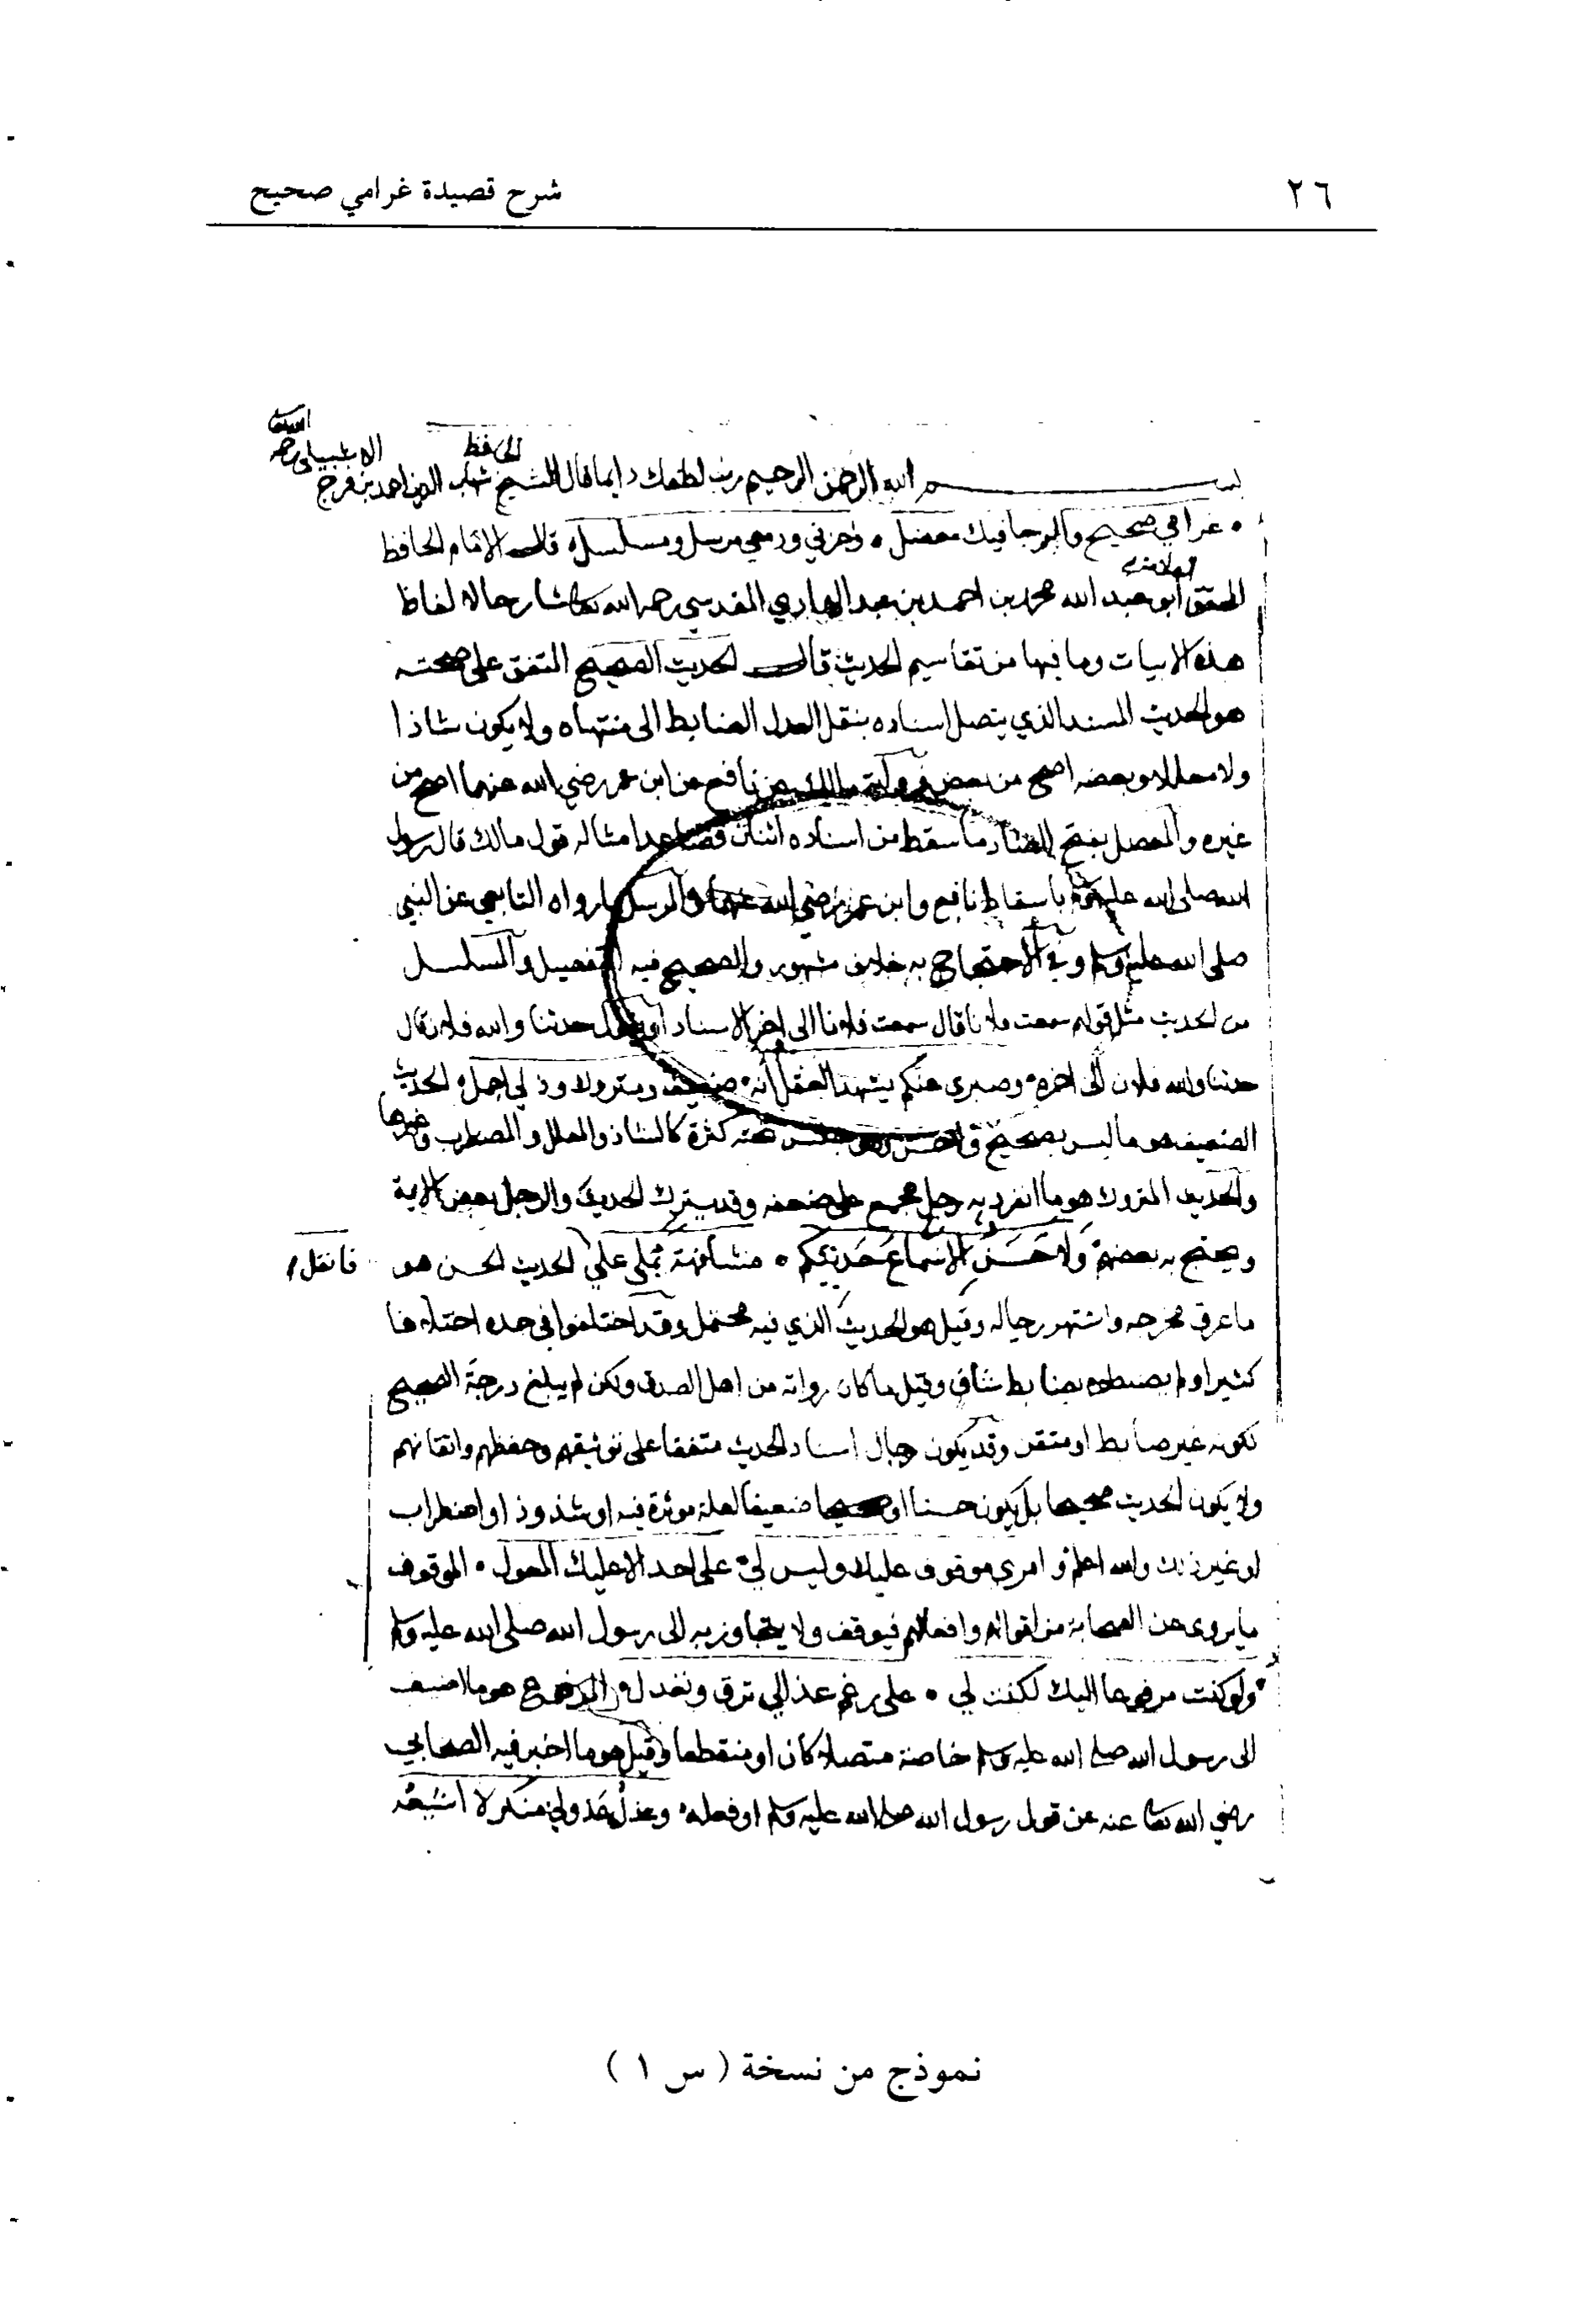 ٢٦
شرح قصيدة غرامي صحيح
الله تعالى
الحافظ الاشبيلي رحمه
بسم الله الرحمن الرحيم رب لطفك دايما قال الشيخ شهاب الدين احمد بن فرح
غرامي صحيح والرجا فيك معضل وحزني ودمعي مرسل ومسلسل قال الامام الحافظ
المحقق ابو عبد الله محمد بن احمد بن عبد الهادي المقدسي رحمه الله تعالى شارحا لالفاظ
هذه الابيات وما فيها من تقاسيم الحديث قال الحديث الصحيح المتفق على صحته
هو الحديث المسند الذي يتصل اسناده بنقل العدل الضابط الى منتهاه ولا يكون شاذا
ولا معللا وبعضه اصح من بعض فرواية مالك عن نافع عن ابن عمر رضي الله عنهما اصح من
غيره والمعضل بفتح الضاد ما سقط من اسناده اثنان فصاعدا مثاله قول مالك قال رسول
الله صلى الله عليه باسقاط نافع وابن عمر رضي الله عنهما والمرسل ما رواه التابعي عن النبي
صلى الله عليه وسلم وفي الاحتجاج به خلاف مشهور والصحيح فيه التفصيل والمسلسل
من الحديث مثل قولهم سمعت فلانا قال سمعت فلانا الى اخر الاسناد او يقول حدثنا والله فلان قال
حدثنا والله فلان الى اخره وصبري عنكم يشهد العقل انه ضعيف ومتروك وذلي اجمل الحديث
الضعيف هو ما ليس بصحيح ولا حسن وهو جنس تحته كثرة كالشاذ والمعلل والمضطرب وغيرها
والحديث المتروك هو ما انفرد به رجل مجمع على ضعفه وقد يترك الحديث والرجل بعض الايمة
ويحتج به بعضهم ولا حسن الا سماع حديثكم مشافهة تملى علي الحديث الحسن هو فانقل
ما عرف مخرجه واشتهر رجاله وقيل هو الحديث الذي فيه محتمل وقد اختلفوا في حده اختلافا
كثيرا ولم يضبطوه بضابط شاف وقيل ما كان رواته من اهل الصدق ولكن لم يبلغ درجة الصحيح
لكونه غير ضابط او متقن وقد يكون رجال اسناد الحديث متفقا على توثيقهم وحفظهم واتقانهم
ولا يكون الحديث صحيحا بل يكون حسنا او ضعيفا لعلة موثرة فيه او شذوذ او اضطراب
او غير ذلك والله اعلم وامري موقوف عليك وليس لي على احد الا عليك المعول الموقوف
ما يروى عن الصحابة من اقوالهم وافعالهم فيوقف ولا يتجاوز به الى رسول الله صلى الله عليه وسلم
ولو كنت مرفوعا اليك لكنت لي على رغم عذالي ترق وتعدل والمرفوع هو ما اضيف
الى رسول الله صلى الله عليه وسلم خاصة متصلا كان او منقطعا وقيل هو ما اخبر فيه الصحابي
رضي الله تعالى عنه عن قول رسول الله صلى الله عليه وسلم او فعله وعذل عذولي منكر لا اسيغه
نموذج من نسخة ( س ١ )